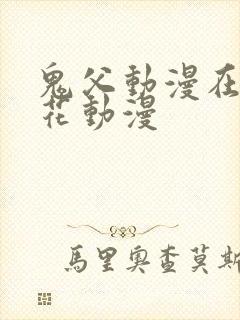 鬼父動漫在
花動漫
馬里奧查莫斯